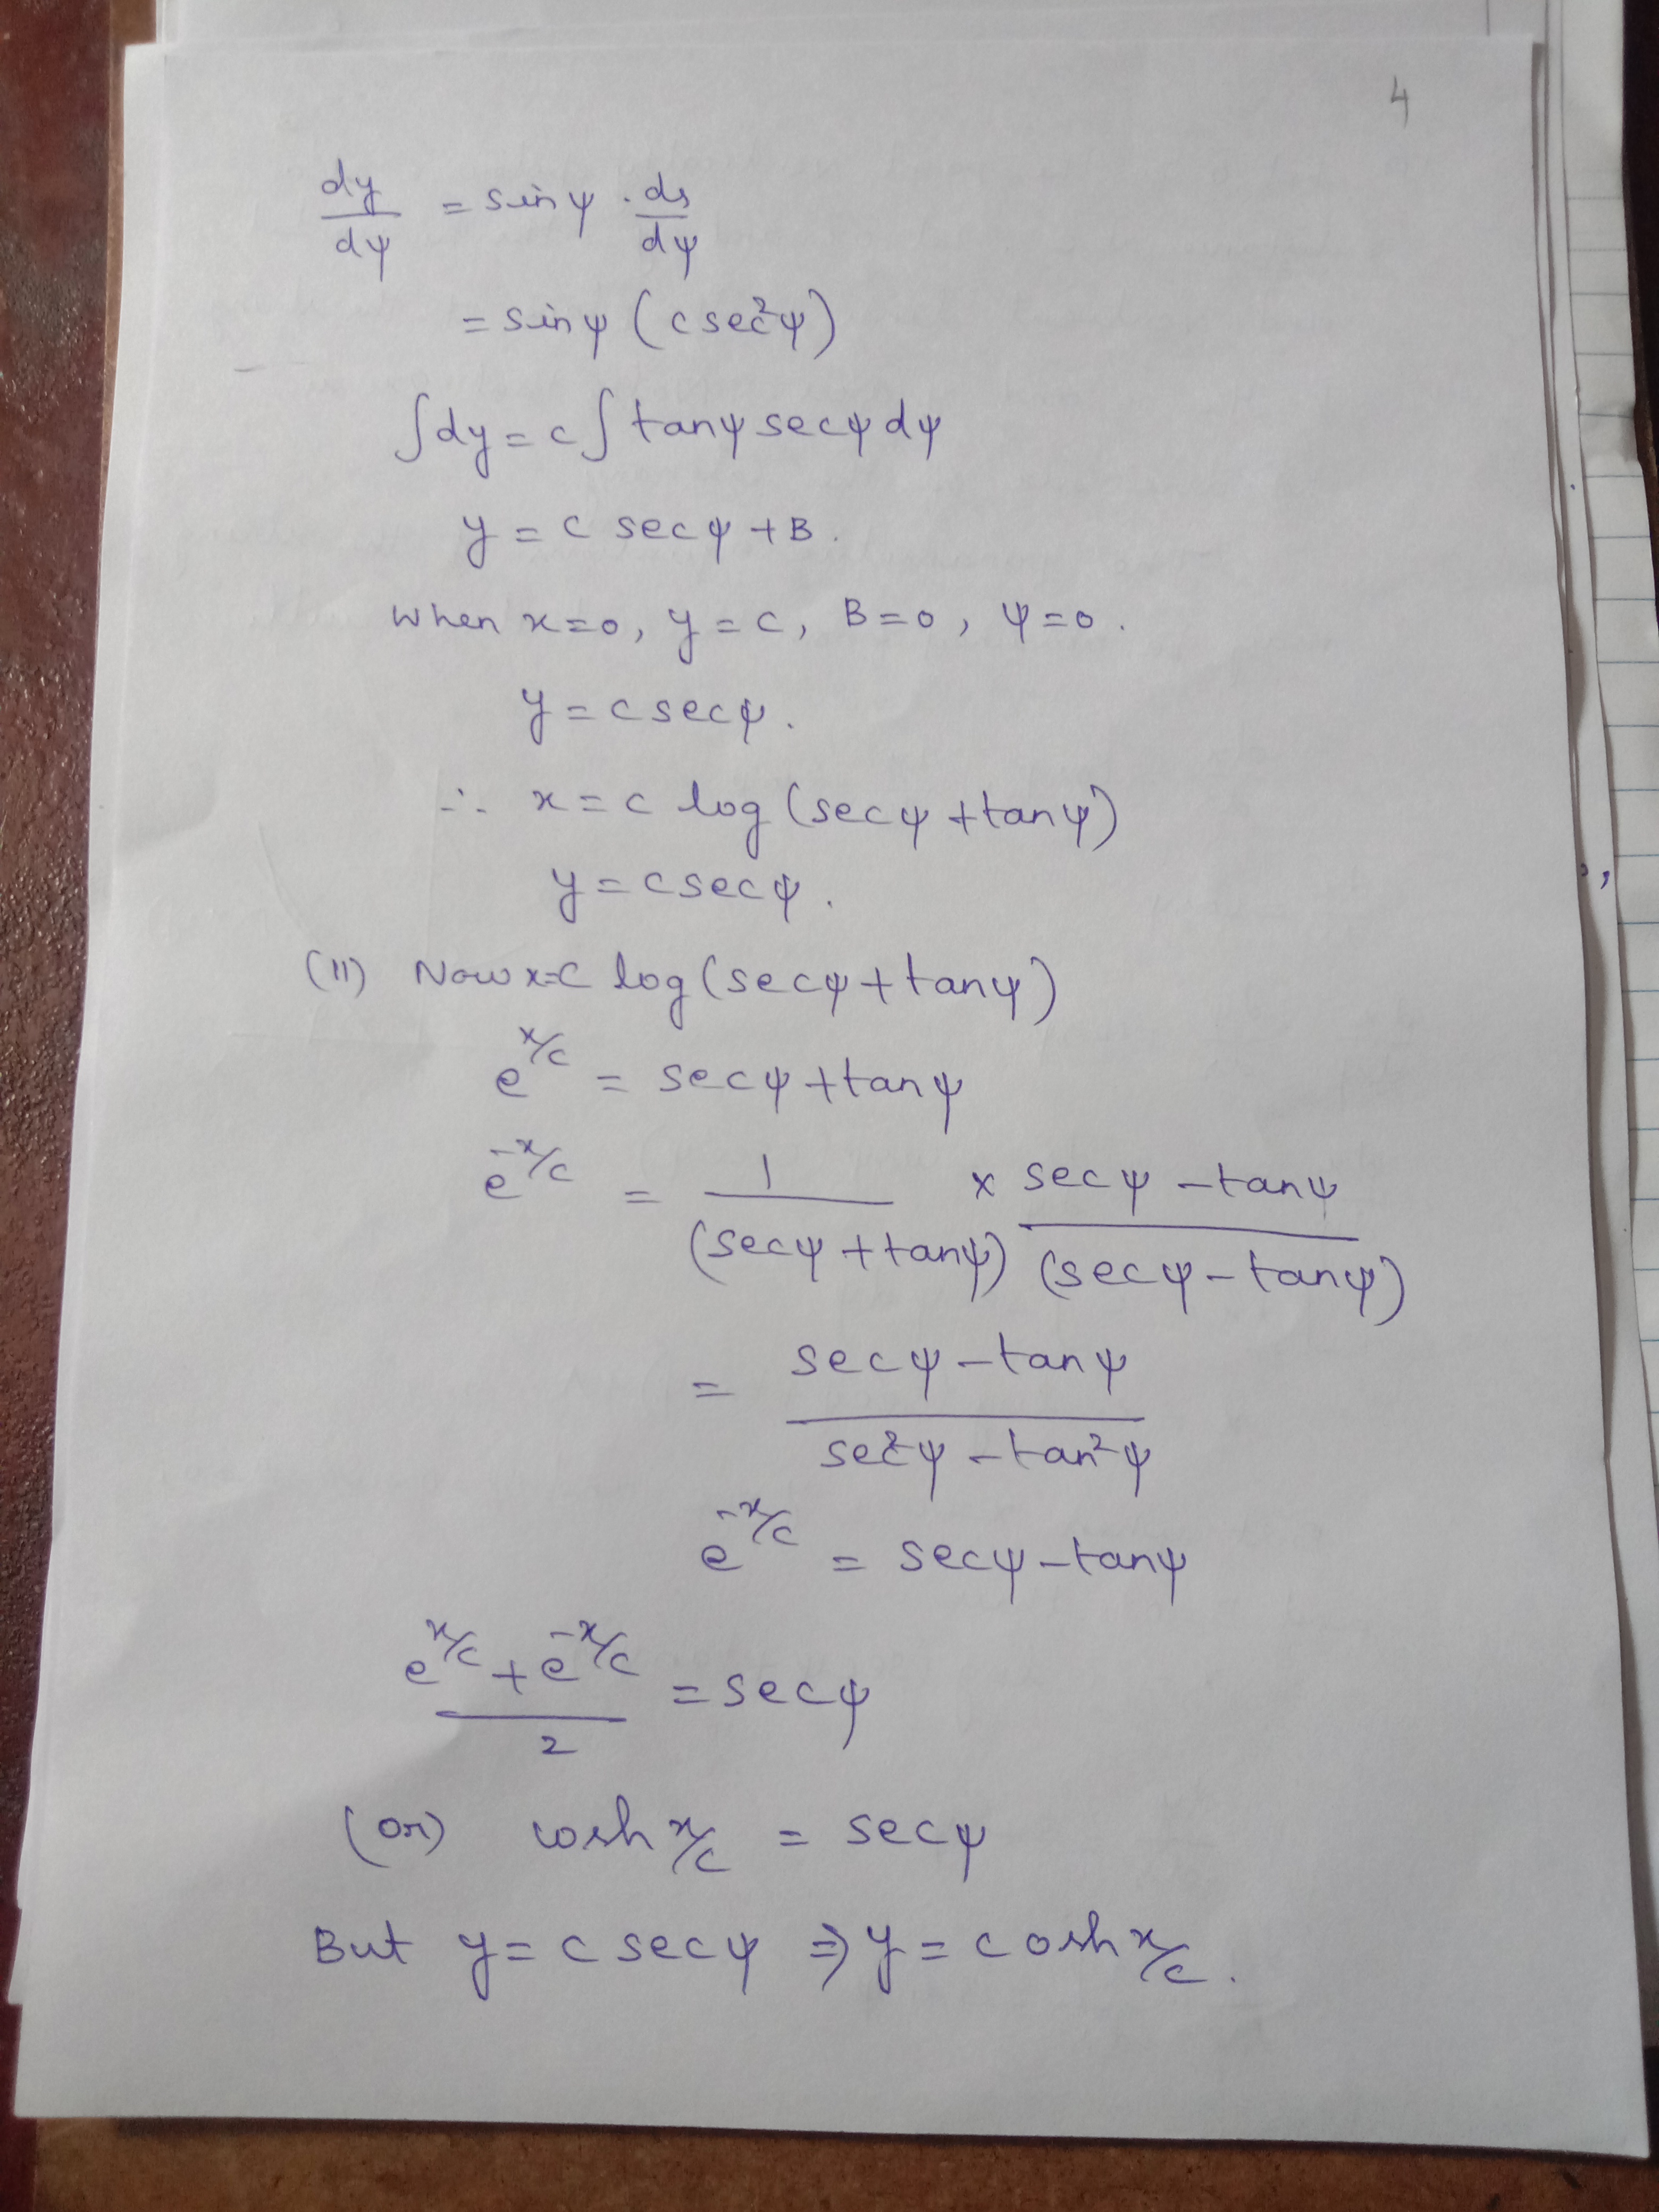 4
dy/dψ = sin ψ . ds/dψ
= sin ψ (c sec²ψ)
∫dy = c∫ tanψ secψ dψ
y = c sec ψ + B.
When x=0, y=c, B=0, ψ=0.
y = c secψ.
∴ x = c log (secψ + tanψ)
y = c secψ.
(II) Now x=c log (secψ + tanψ)
e^x/c = secψ + tanψ
e^-x/c = 1/(secψ + tanψ) × secψ - tanψ/(secψ - tanψ)
= secψ - tanψ/sec²ψ - tan²ψ
e^-x/c = secψ - tanψ
e^x/c + e^-x/c/2 = secψ
(or) cosh x/c = secψ
But y = c secψ ⇒ y = c osh x/c.